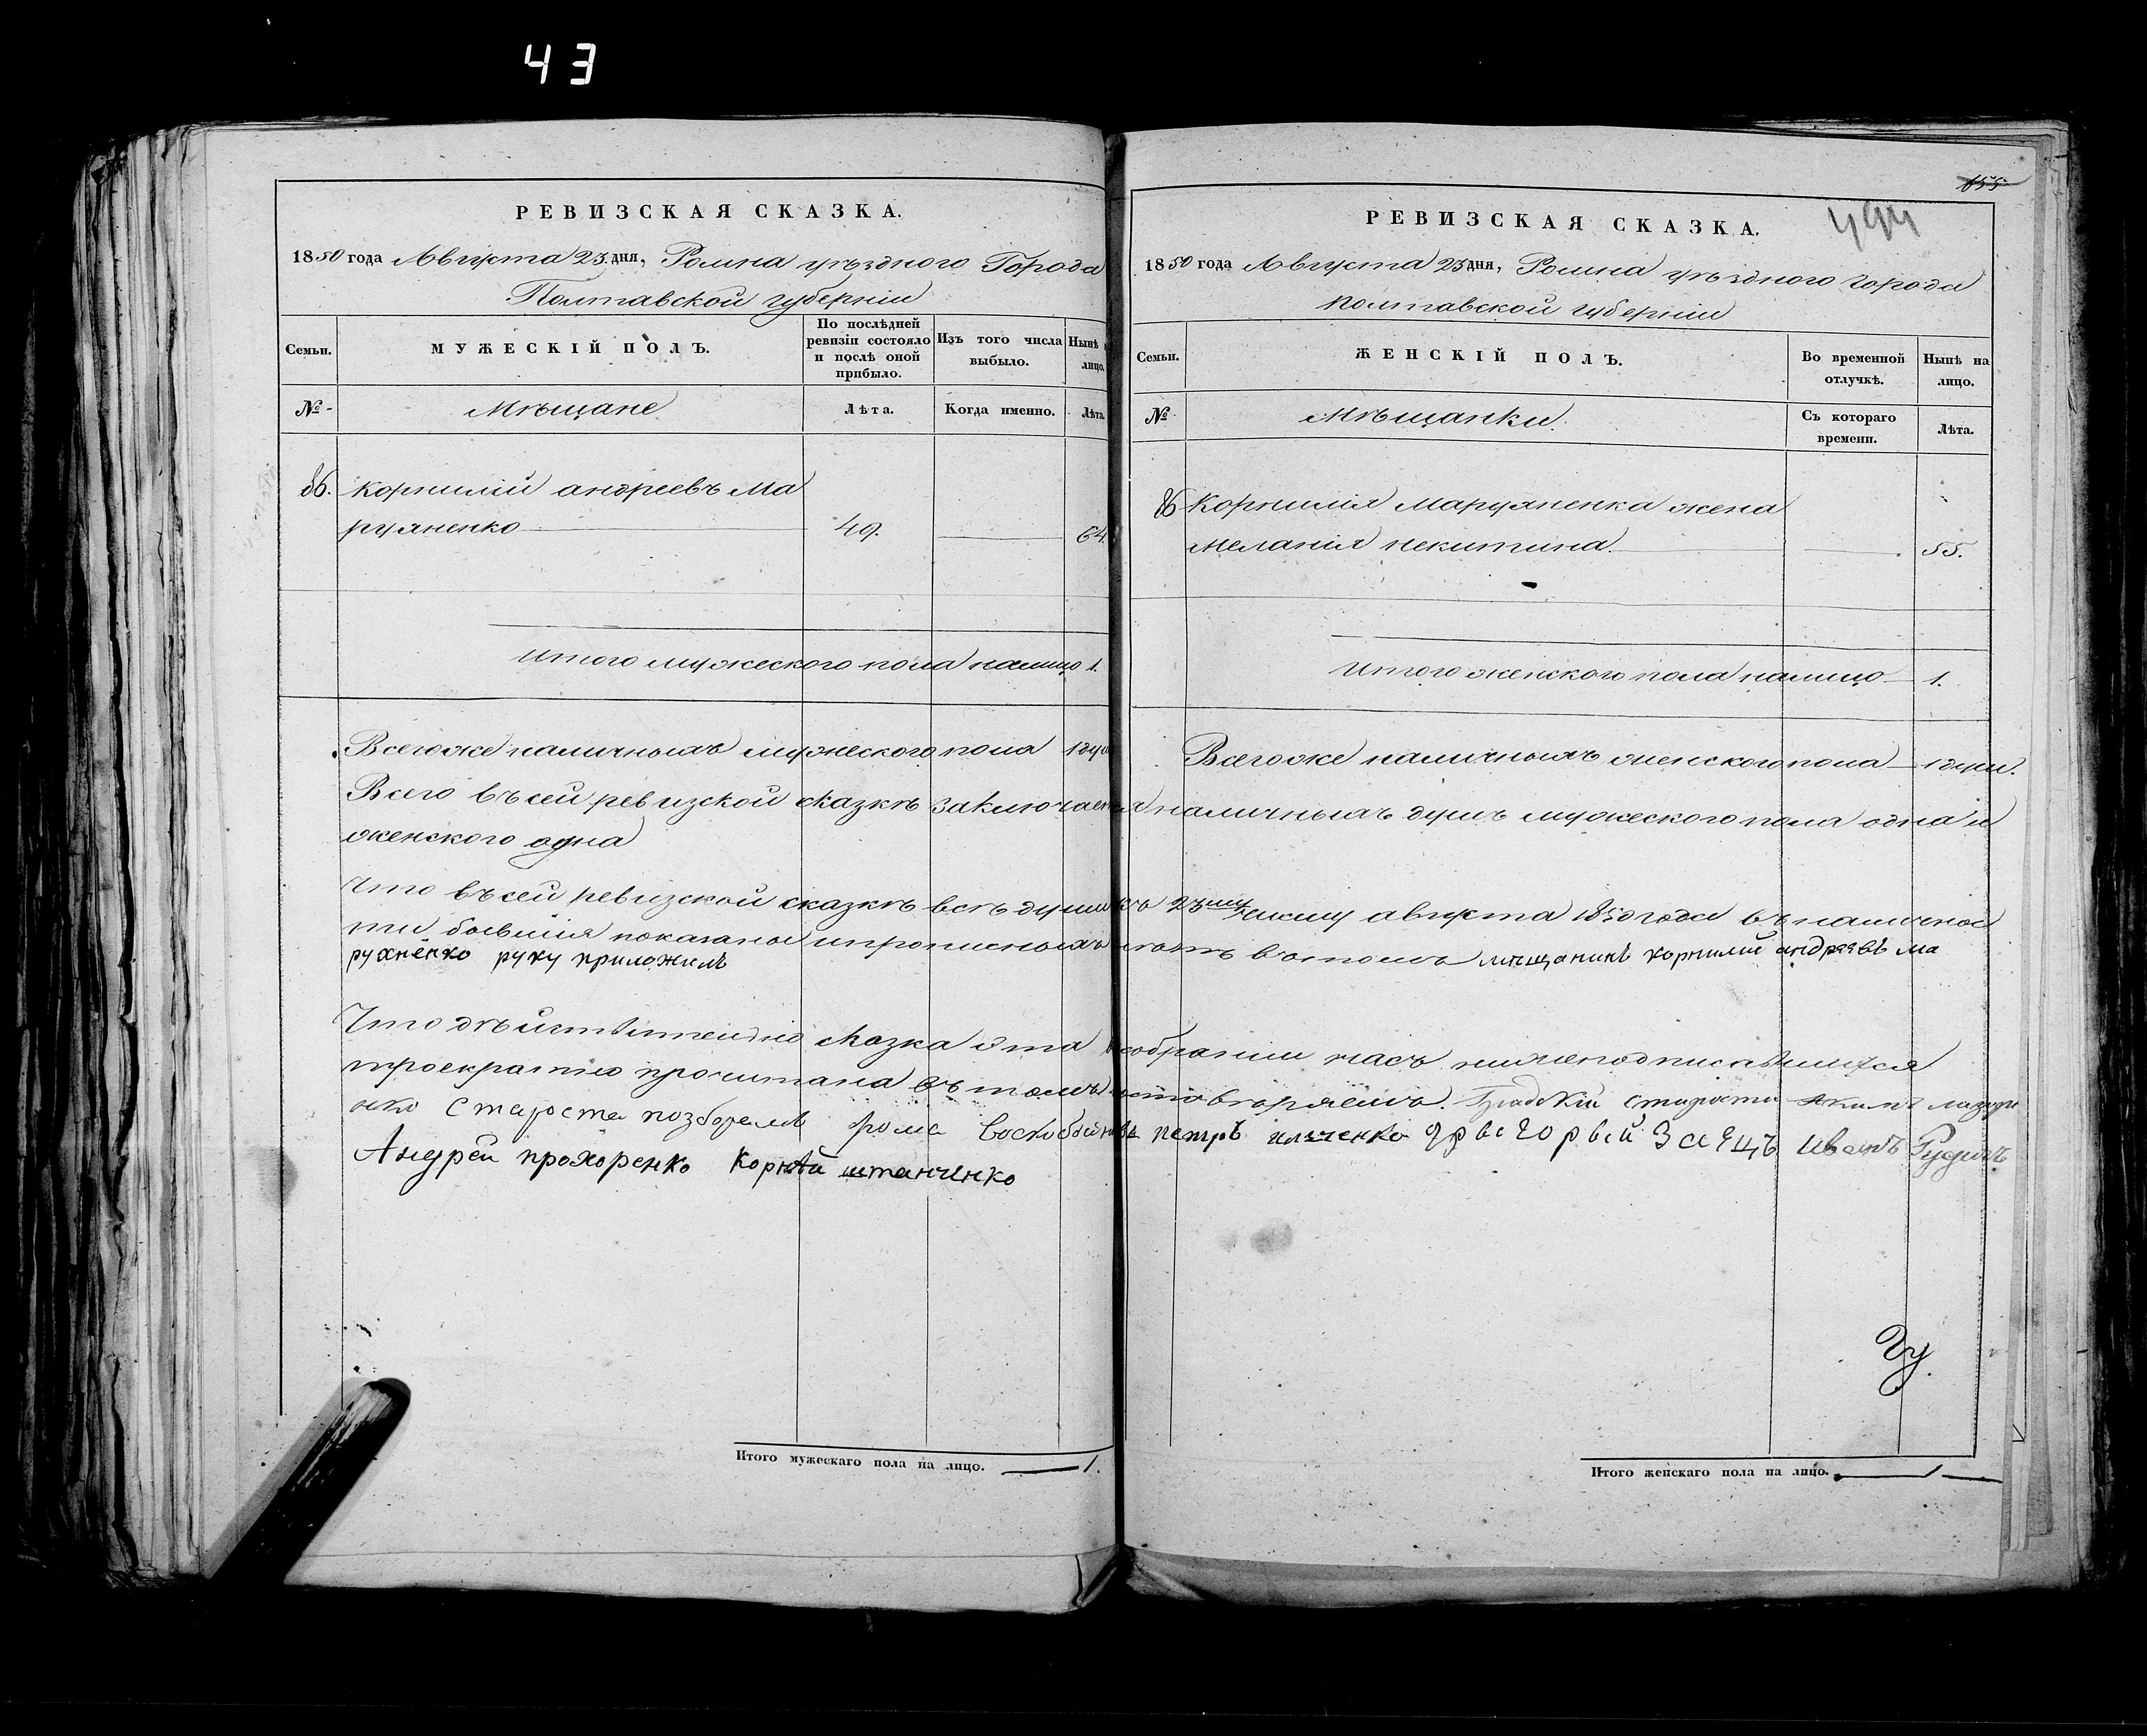 43
РЕВИЗСКАЯ СКАЗКА.
1850 года Августа 23 дня, Ромна уѣздного Города
Полтавской губерніи
Семьи.
МУЖЕСКІЙ ПОЛЪ.
По послѣдней ревизіи состояло и послѣ оной прибыло.
Изъ того числа выбыло.
Нынѣ
лицо.
№
Мѣщане
Лѣта.
Когда именно.
Лѣта.
86. Корнилій андреевъ Ма
руяненко 49. 64.
Итого мужеского пола налицо 1.
Всегоже наличныхъ мужеского пола 1 душ
Всего въ сей ревизской сказкѣ заключает
женского одна
Что въ сей ревизской сказкѣ всѣ души
ти бывшія показаны и прописныхъ
рухнѣнко руку приложилъ
Что дѣйствительно сказка эта
троекратно прочитана въ томъ
нко Староста
Андрей прохоренко Корнѣй штанченко
Итого мужескаго пола на лицо. 1.
155
494
РЕВИЗСКАЯ СКАЗКА.
1850 года Августа 23 дня, Ромна уѣздного города
Полтавской губерніи
Семьи.
ЖЕНСКІЙ ПОЛЪ.
Во временной отлучкѣ.
Нынѣ на лицо.
№
Мѣщанки.
Съ котораго времени.
Лѣта.
86 Корнилія Маруяненка жена
Меланія Некитина. 55.
Итого женского пола налицо 1.
Всегоже наличныхъ женского пола 1 душ.
наличныхъ душъ мужеского пола одна и
къ 23му числу августа 1850 года въ налично
нѣтъ въ томъ мѣщанинъ корнилий андреевъ ма
собраніи насъ нижеподписавшихся
Градскій староста Якимъ
петръ ильченко Заецъ Иванъ
Итого женскаго пола на лицо. 1